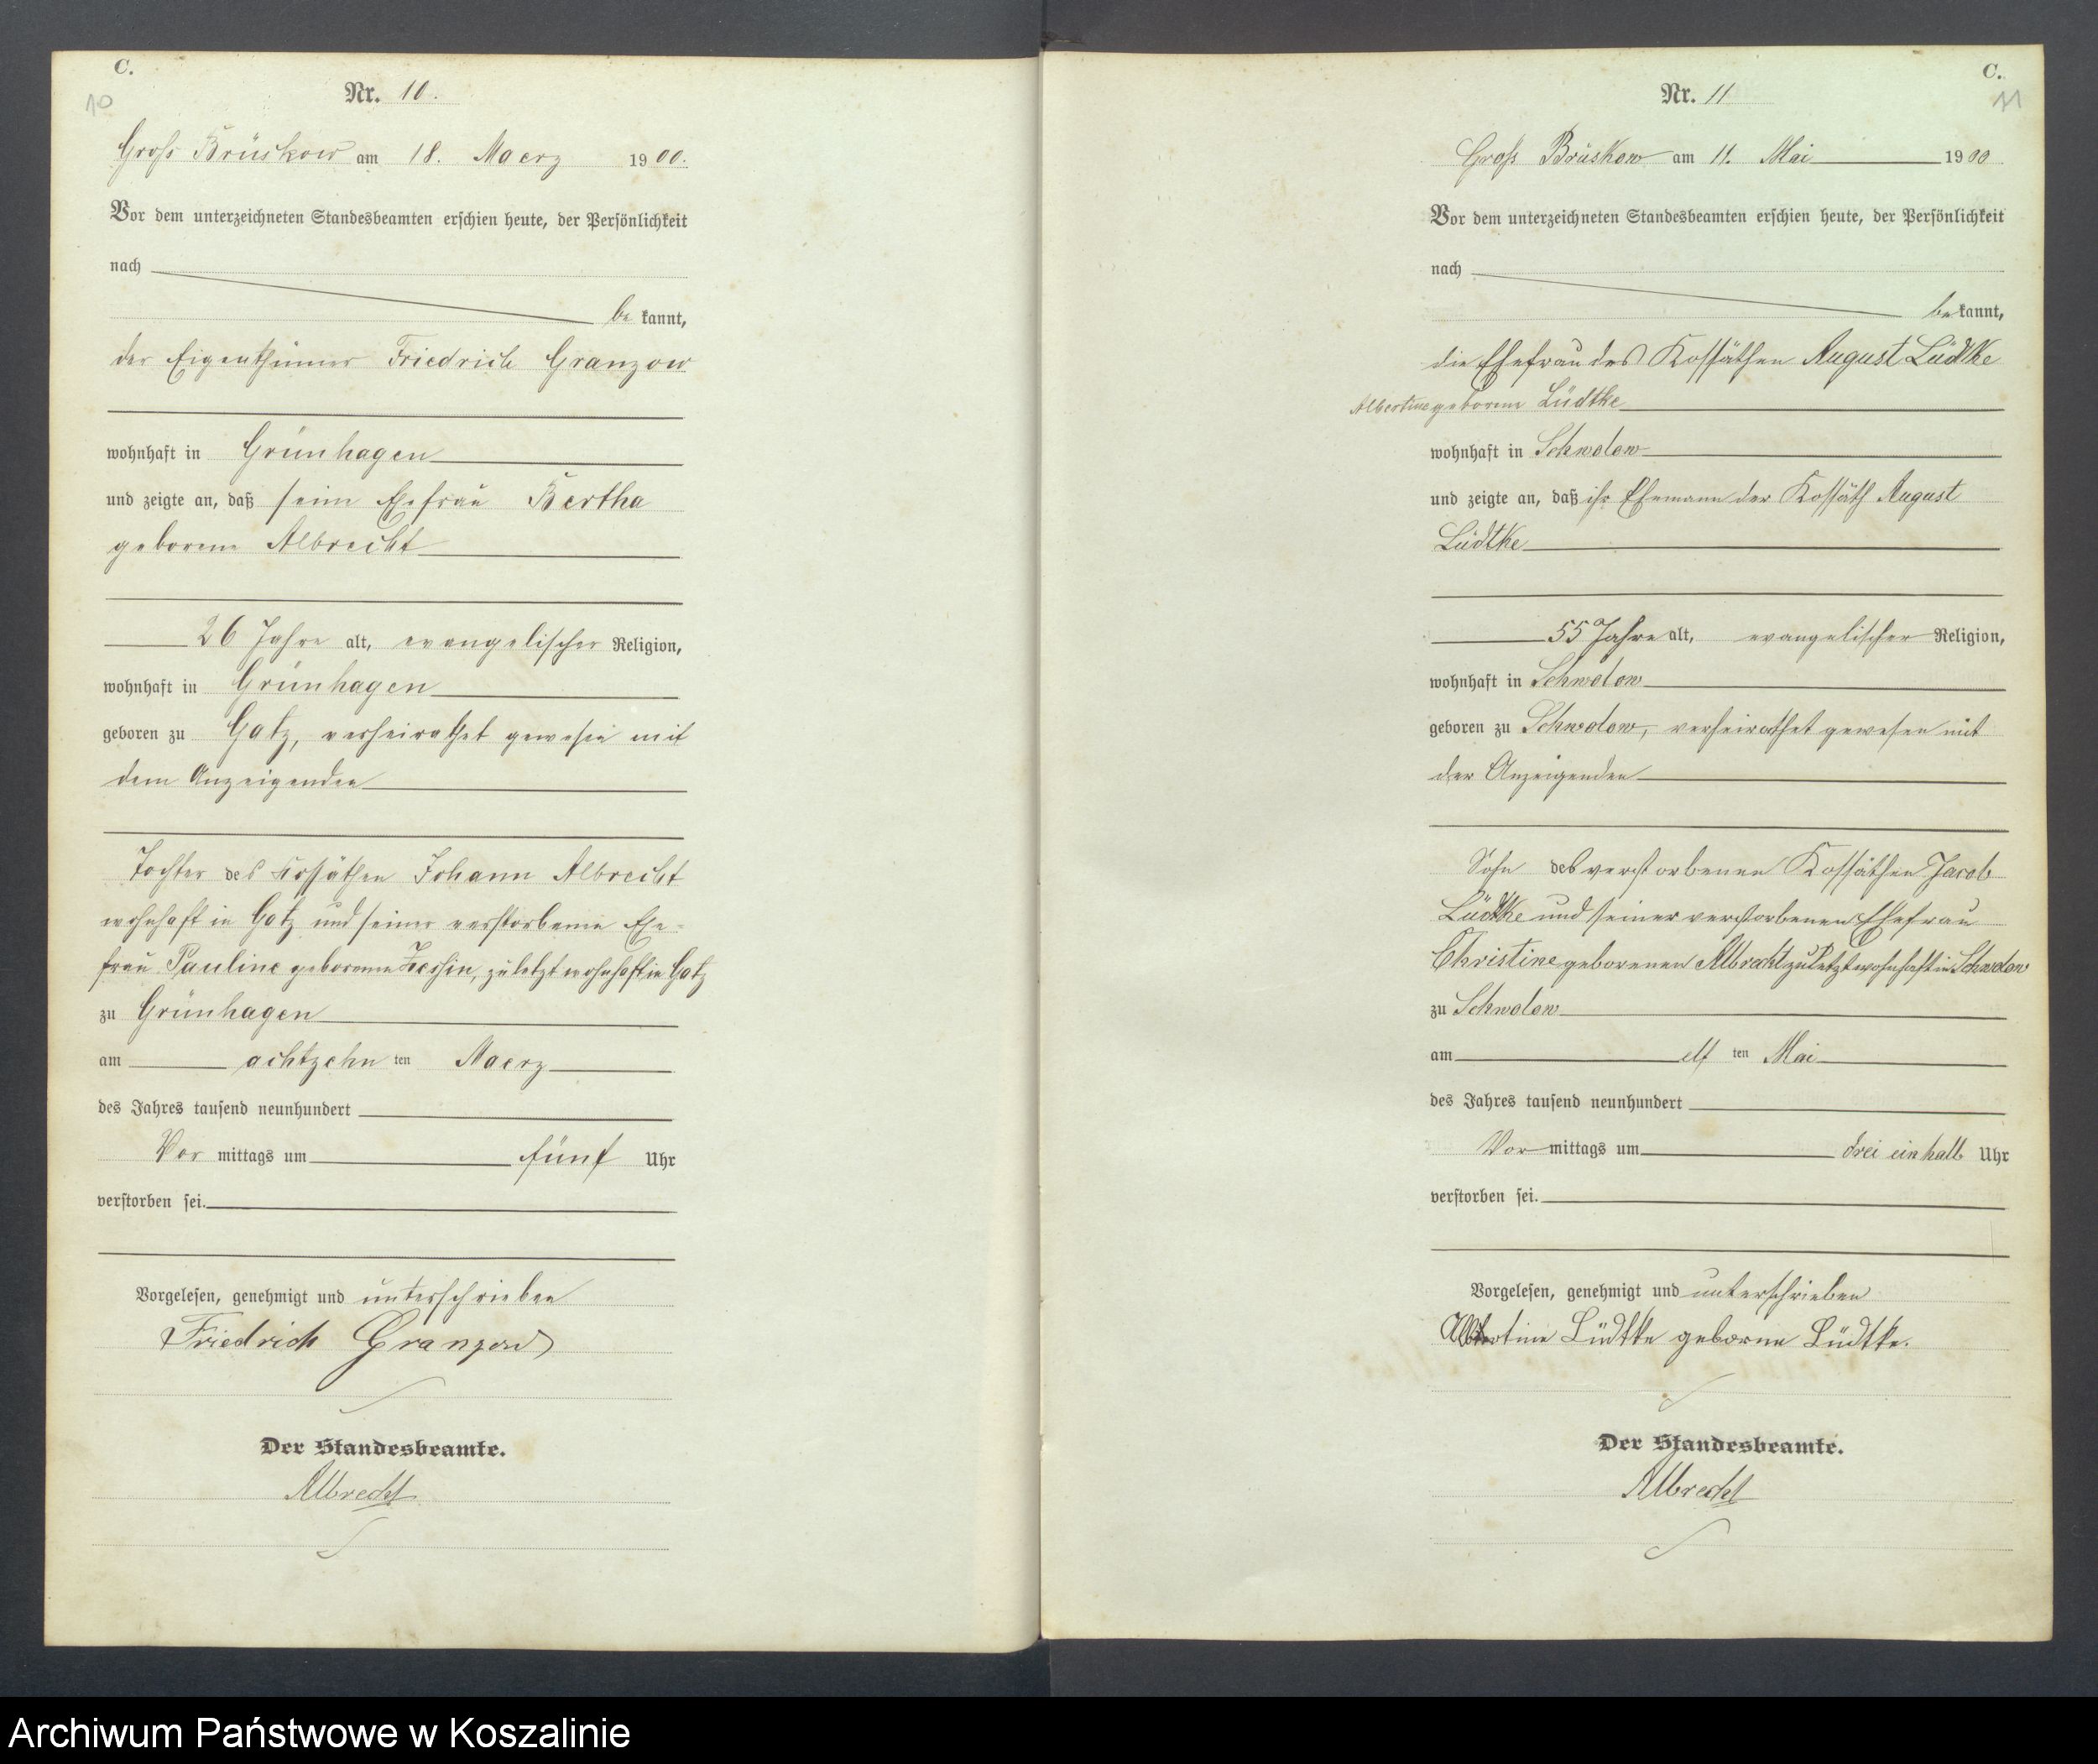 C.
10
Nr. 10.
Gross Brüskow am 18. Maerz 1900.
Vor dem unterzeichneten Standesbeamten erschien heute, der Persönlichkeit
nach
be kannt,
der Eigenthümer Friedrich Granzow
wohnhaft in Grünhagen
und zeigte an, daß seine Ehefrau Bertha
geborene Albrecht
26 Jahre alt, evangelischer Religion,
wohnhaft in Grünhagen
geboren zu Gatz, verheirathet gewesen mit
dem Anzeigenden
Tochter des Kossäthen Johann Albrecht
wohnhaft in Gatz und seiner verstorbenen Ehe-
frau Pauline geborenen zuletzt wohnhaft in Gatz
zu Grünhagen
am achtzehn ten Maerz
des Jahres tausend neunhundert
Vor mittags um fünf Uhr
verstorben sei.
Vorgelesen, genehmigt und unterschrieben
Friedrich Granzow
Der Standesbeamte.
Albrecht
C.
11
Nr. 11
Gross Brüskow am 11. Mai 1900
Vor dem unterzeichneten Standesbeamten erschien heute, der Persönlichkeit
nach
be kannt,
die Ehefrau des Kossäthen August Lüdtke
Albertine geborene Lüdtke
wohnhaft in Schwolow
und zeigte an, daß ihr Ehemann der Kossäth August
Lüdtke
55 Jahre alt, evangelischer Religion,
wohnhaft in Schwolow
geboren zu Schwolow, verheirathet gewesen mit
der Anzeigenden
Sohn des verstorbenen Kossäthen Jacob
Lüdtke und seiner verstorbenen Ehefrau
Christine geborenen Albrecht zuletzt wohnhaft in Schwolow
zu Schwolow
am elf ten Mai
des Jahres tausend neunhundert
Vor mittags um drei ein halb Uhr
verstorben sei.
Vorgelesen, genehmigt und unterschrieben
Albertine Lüdtke geborne Lüdtke.
Der Standesbeamte.
Albrecht
Archiwum Państwowe w Koszalinie